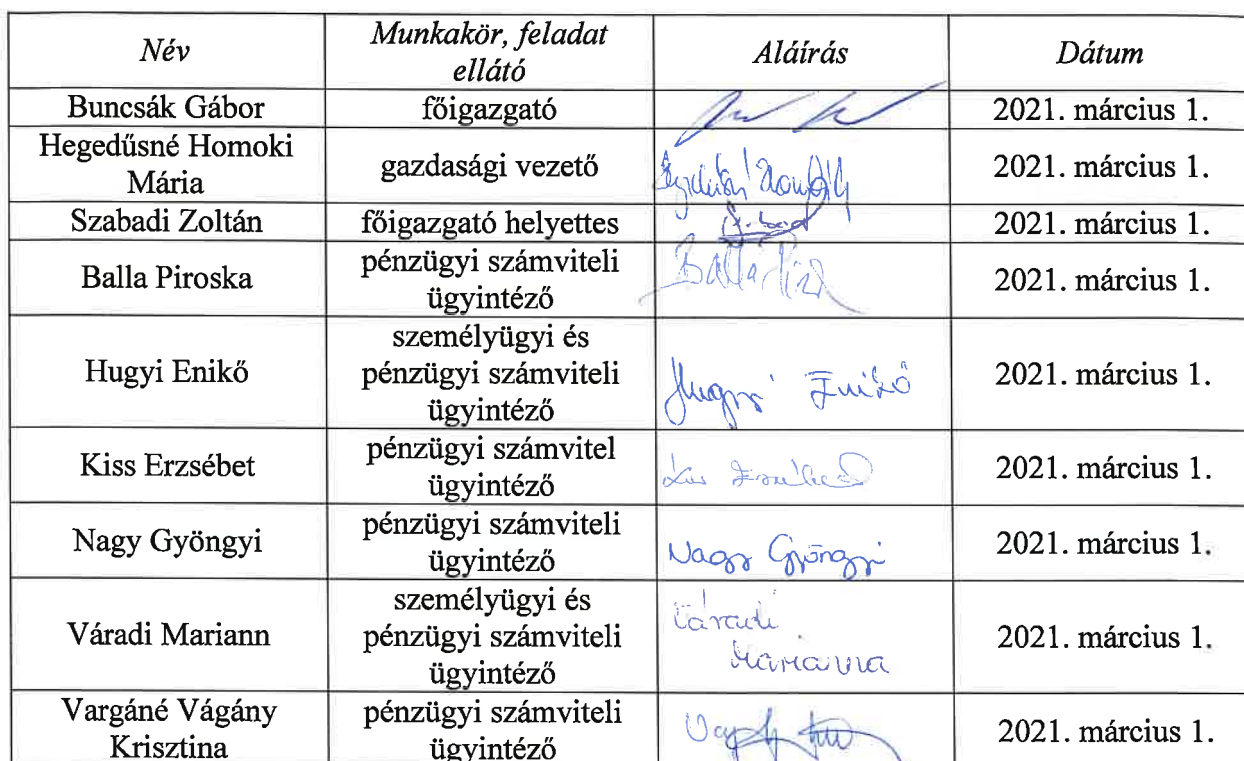 Név Munkakör, feladat ellátó Aláírás Dátum
Buncsák Gábor főigazgató 2021. március 1.
Hegedűsné Homoki Mária gazdasági vezető 2021. március 1.
Szabadi Zoltán főigazgató helyettes 2021. március 1.
Balla Piroska pénzügyi számviteli ügyintéző Balla 2021. március 1.
Hugyi Enikő személyügyi és pénzügyi számviteli ügyintéző Hugyi Enikő 2021. március 1.
Kiss Erzsébet pénzügyi számvitel ügyintéző Kiss Erzsébet 2021. március 1.
Nagy Gyöngyi pénzügyi számviteli ügyintéző Nagy Gyöngyi 2021. március 1.
Váradi Mariann személyügyi és pénzügyi számviteli ügyintéző Váradi Marianna 2021. március 1.
Vargáné Vágány Krisztina pénzügyi számviteli ügyintéző 2021. március 1.